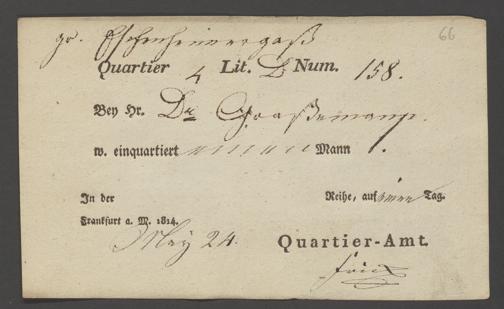 66
gr. Eschenheimergaß
Quartier 4 Lit. D Num. 158.
Bey Hr. Dr
w. einquartiert Mann 1.
In der Reihe, auf einen Tag.
Frankfurt a. M. 1814.
May 24.
Quartier-Amt.